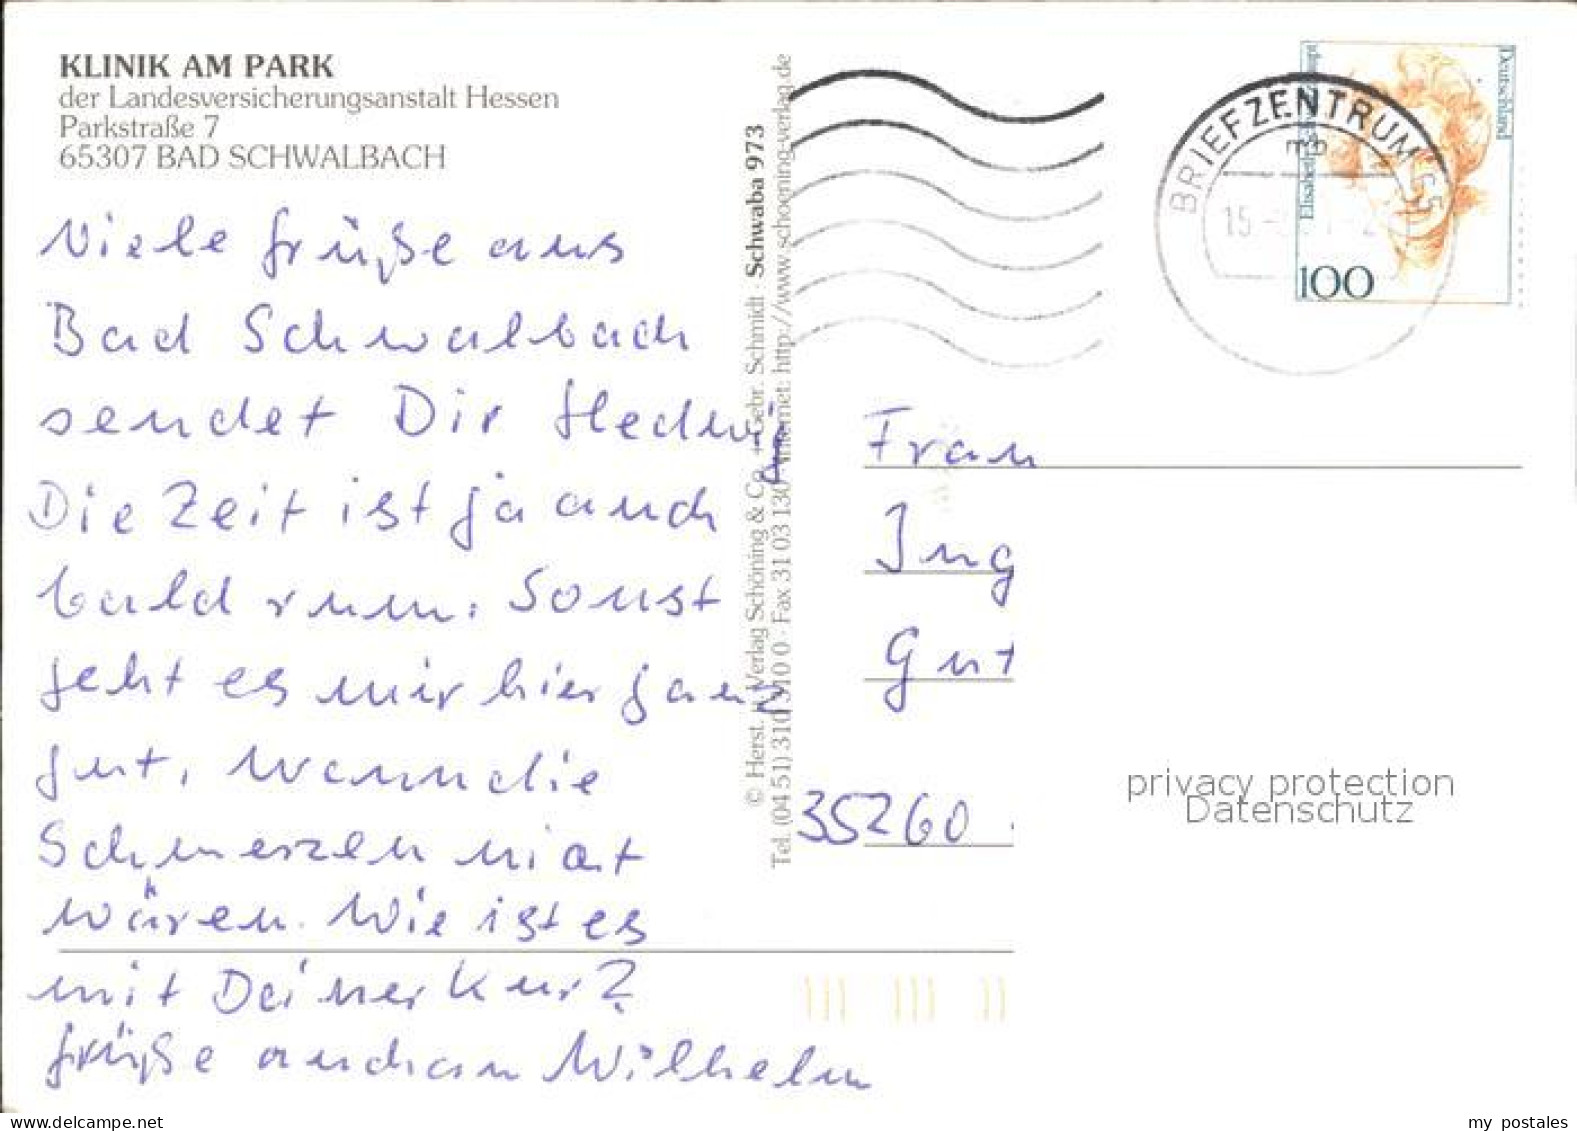 KLINIK AM PARK
der Landesversicherungsanstalt Hessen
Parkstraße 7
65307 BAD SCHWALBACH
Viele Grüße aus
Bad Schwalbach
sendet Dir Hedwig
Die Zeit ist ja auch
bald rum. Sonst
geht es mir hier ganz
gut, wenn die
Schmerzen nicht
wären. Wie ist es
mit Deiner Kur?
Grüße auch an Wilhelm
© Herst. u. Verlag Schöning & Co. + Gebr. Schmidt · Schwaba 973
Tel. (04 51) 310 310 0 · Fax 31 03 130 Internet: http://www.schoening-verlag.de
BRIEFZENTRUM 65
mb
15
Deutschland
Elisabeth
100
Frau
Ing
Gut
35260
privacy protection
Datenschutz
delcampe.net
my postales